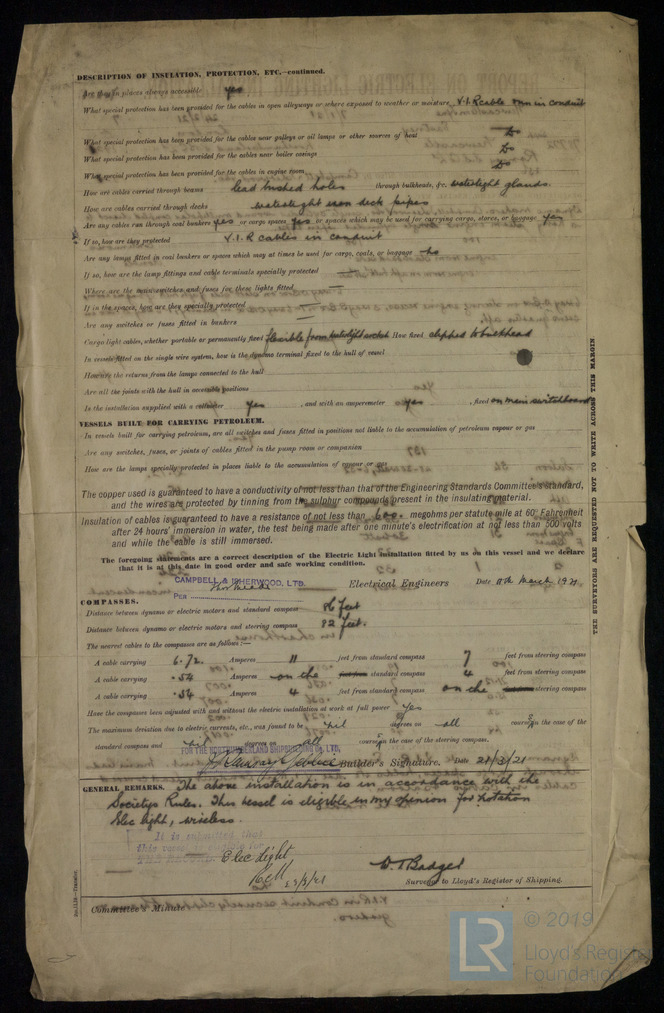 DESCRIPTION OF INSULATION, PROTECTION, ETC.—continued.
Are they in places always accessible yes
What special protection has been provided for the cables in open alleyways or where exposed to weather or moisture V.I.R cable run in conduit
What special protection has been provided for the cables near galleys or oil lamps or other sources of heat Do
What special protection has been provided for the cables near boiler casings Do
What special protection has been provided for the cables in engine room Do
How are cables carried through beams lead bushed holes through bulkheads, &c. watertight glands.
How are cables carried through decks watertight iron deck pipes
Are any cables run through coal bunkers yes or cargo spaces yes or spaces which may be used for carrying cargo, stores, or baggage yes
If so, how are they protected V.I.R cables in conduit
Are any lamps fitted in coal bunkers or spaces which may at times be used for cargo, coals, or baggage no
If so, how are the lamp fittings and cable terminals specially protected —
Where are the main switches and fuses for these lights fitted —
If in the spaces, how are they specially protected —
Are any switches or fuses fitted in bunkers
Cargo light cables, whether portable or permanently fixed flexible from watertight socket How fixed clipped to bulkhead
In vessels fitted on the single wire system, how is the dynamo terminal fixed to the hull of vessel
How are the returns from the lamps connected to the hull
Are all the joints with the hull in accessible positions
Is the installation supplied with a voltmeter yes , and with an amperemeter yes , fixed on main switchboard
VESSELS BUILT FOR CARRYING PETROLEUM.
In vessels built for carrying petroleum, are all switches and fuses fitted in positions not liable to the accumulation of petroleum vapour or gas
Are any switches, fuses, or joints of cables fitted in the pump room or companion
How are the lamps specially protected in places liable to the accumulation of vapour or gas
The copper used is guaranteed to have a conductivity of not less than that of the Engineering Standards Committee's standard,
and the wires are protected by tinning from the sulphur compounds present in the insulating material.
Insulation of cables is guaranteed to have a resistance of not less than 600 megohms per statute mile at 60° Fahrenheit
after 24 hours' immersion in water, the test being made after one minute's electrification at not less than 500 volts
and while the cable is still immersed.
The foregoing statements are a correct description of the Electric Light installation fitted by us on this vessel and we declare
that it is at this date in good order and safe working condition.
CAMPBELL & ISHERWOOD, LTD.
PER Electrical Engineers Date 11th March 1921
COMPASSES.
Distance between dynamo or electric motors and standard compass 86 feet
Distance between dynamo or electric motors and steering compass 82 feet.
The nearest cables to the compasses are as follows:—
A cable carrying 6.72 Amperes 11 feet from standard compass 7 feet from steering compass
A cable carrying .54 Amperes on the feet from standard compass 4 feet from steering compass
A cable carrying .54 Amperes 4 feet from standard compass on the steering compass
Have the compasses been adjusted with and without the electric installation at work at full power Yes
The maximum deviation due to electric currents, etc., was found to be nil degrees on all courses in the case of the
standard compass and nil degrees on all courses in the case of the steering compass.
FOR THE NORTHUMBERLAND SHIPBUILDING Co. LTD,
Builder's Signature. Date 21/3/21
GENERAL REMARKS. The above installation is in accordance with the
Societys Rules. This vessel is eligible in my opinion for notation
Elec light, wireless.
It is submitted that
this vessel is eligible for
THE RECORD. Elec light
23/3/21
W. T. Badger
Surveyor to Lloyd's Register of Shipping.
Committee's Minute
THE SURVEYORS ARE REQUESTED NOT TO WRITE ACROSS THIS MARGIN
© 2019
LR Lloyd's Register
Foundation